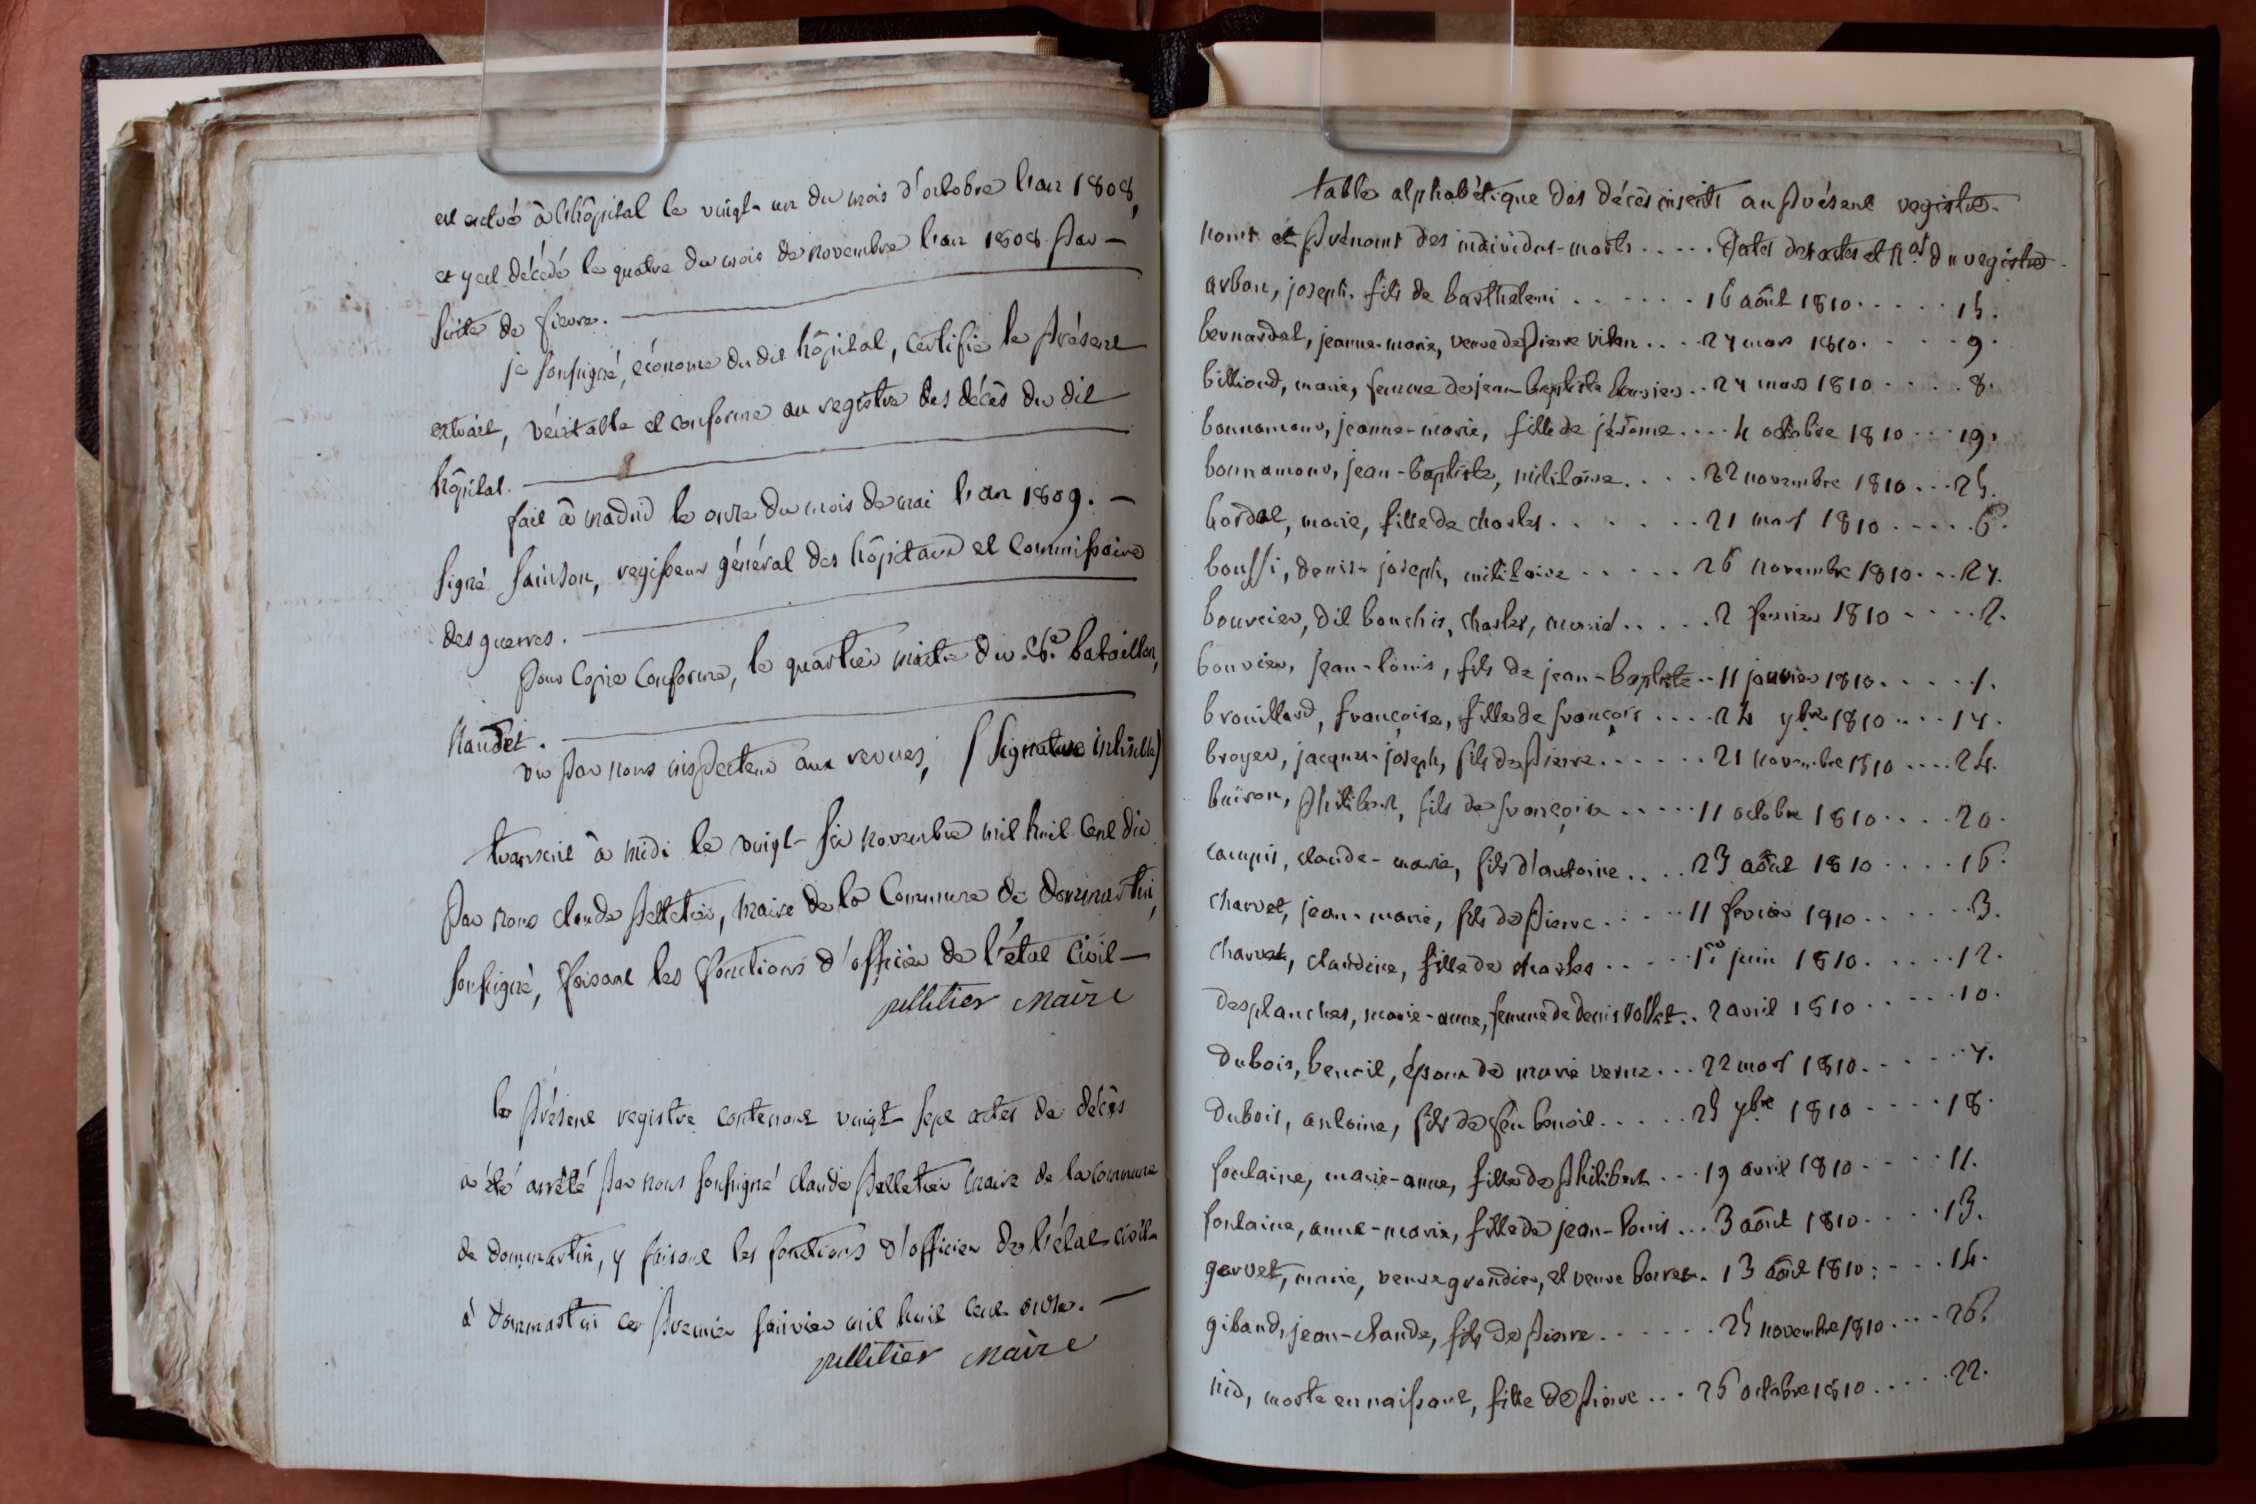 est entré à l'hôpital le vingt-un du mois d'octobre l'an 1808,
et y est décédé le quatre du mois de novembre l'an 1808 par -
suite de fievre.
je soussigné, économe du dit hôpital, certifie le présent
extrait, véritable et conforme au registre des décès du dit
hôpital.
fait à madrid le onze du mois de mai l'an 1809. -
signé sainson, regisseur général des hôpitaux et commissaire
des guerres.
pour copie conforme, le quartier maitre du 6e. bataillon,
Naudet.
vu par nous inspecteur aux revues, (signature inlisible)
transcrit à midi le vingt-six novembre mil huit cent dix
par nous claude pelletier, maire de la commune de dommartin,
soussigné, faisant les fonctions d'officier de l'état civil -
pelletier maire
le présent registre contenant vingt-sept actes de décès
a été arrêté par nous soussigné claude pelletier maire de la commune
de dommartin, y faisant les fonctions d'officier de l'état-civil
à dommartin ce premier janvier mil huit cent onze. -
pelletier maire
table alphabétique des décès inscrits au présent registre.
noms et prénoms des individus morts ..... Dates des actes et nos. du registre.
arbon, joseph, fils de barthelemi ...... 16 août 1810 ..... 15.
bernardet, jeanne-marie, veuve de pierre vitan .... 27 mars 1810 ..... 9.
billioud, marie, femme de jean-baptiste .. 24 mars 1810 ..... 8.
bonnamour, jeanne-marie, fille de jérôme .... 4 octobre 1810 ... 19.
bonnamour, jean-baptiste, militaire .... 22 novembre 1810 ... 25.
bordat, marie, fille de charles ....... 21 mars 1810 ..... 6.
boussi, denis-joseph, militaire ..... 26 novembre 1810 ... 27.
bouvier, dit bouchis, charles, marié ..... 2 fevrier 1810 .... 2.
bouvier, jean-louis, fils de jean-baptiste .. 11 janvier 1810 ..... 1.
brouillard, françoise, fille de françois .... 24 7bre 1810 .... 17.
broyer, jacques-joseph, fils de pierre ...... 21 novembre 1810 .... 24.
buiron, philibert, fils de françois ..... 11 octobre 1810 .... 20.
campis, claude-marie, fils d'antoine .... 23 août 1810 .... 16.
charvet, jean-marie, fils de pierre ..... 11 fevrier 1910 ...... 3.
charvet, claudine, fille de charles ..... 1er juin 1810 ..... 12.
desplanches, marie-anne, femme de denis vollet .. 2 avril 1810 ..... 10.
dubois, benoit, époux de marie verne ... 22 mars 1810 ..... 7.
dubois, antoine, fils de feu benoit ..... 25 7bre 1810 .... 18.
fontaine, marie-anne, fille de philibert ... 19 avril 1810 .... 11.
fontaine, anne-marie, fille de jean-louis ... 3 août 1810 .... 13.
gervet, marie, veuve grandier, et veuve borret . 13 août 1810 .... 14.
giband, jean-claude, fils de pierre ...... 25 novembre 1810 .... 26.
nid, morte en naissant, fille de pierre ... 26 octobre 1810 ..... 22.